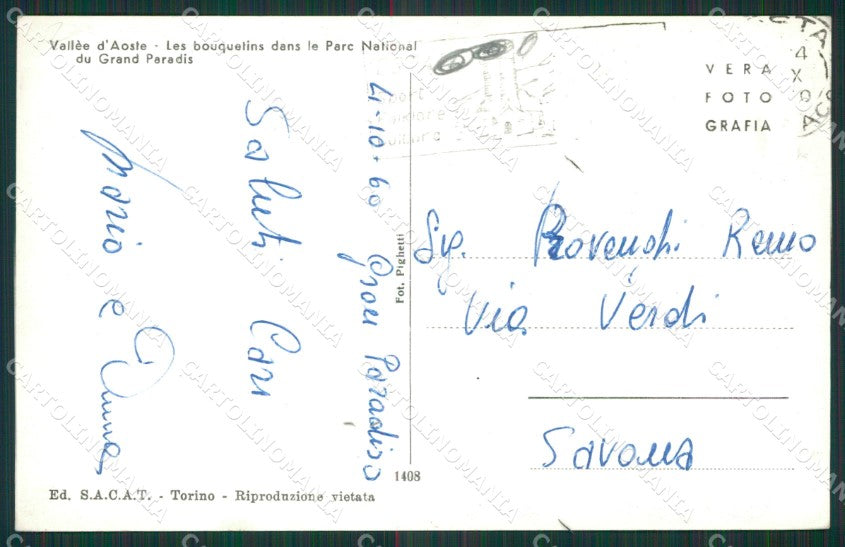 Vallèe d'Aoste - Les bouquetins dans le Parc National
du Grand Paradis
4-10-60 Gran Paradiso
Saluti Cari
Mario e Anna
Fot. Pighetti
1408
Ed. S.A.C.A.T. - Torino - Riproduzione vietata
VERA
FOTO
GRAFIA
Sig. Provenshi Remo
Via Verdi
Savona
CARTOLINOMANIA